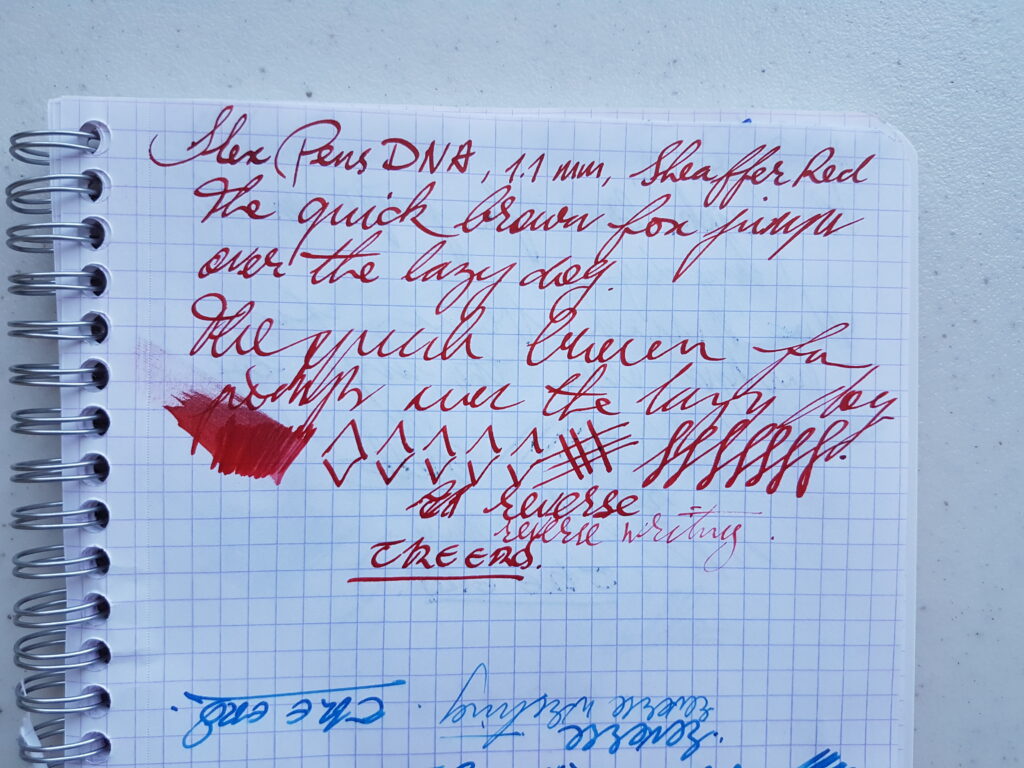 Alex Pens DNA, 1.1 mm, Sheaffer Red
The quick brown fox jumps
over the lazy dog.
The quick brown fox
jumps over the lazy dog
reverse
reverse writing.
reverse
reverse writing.